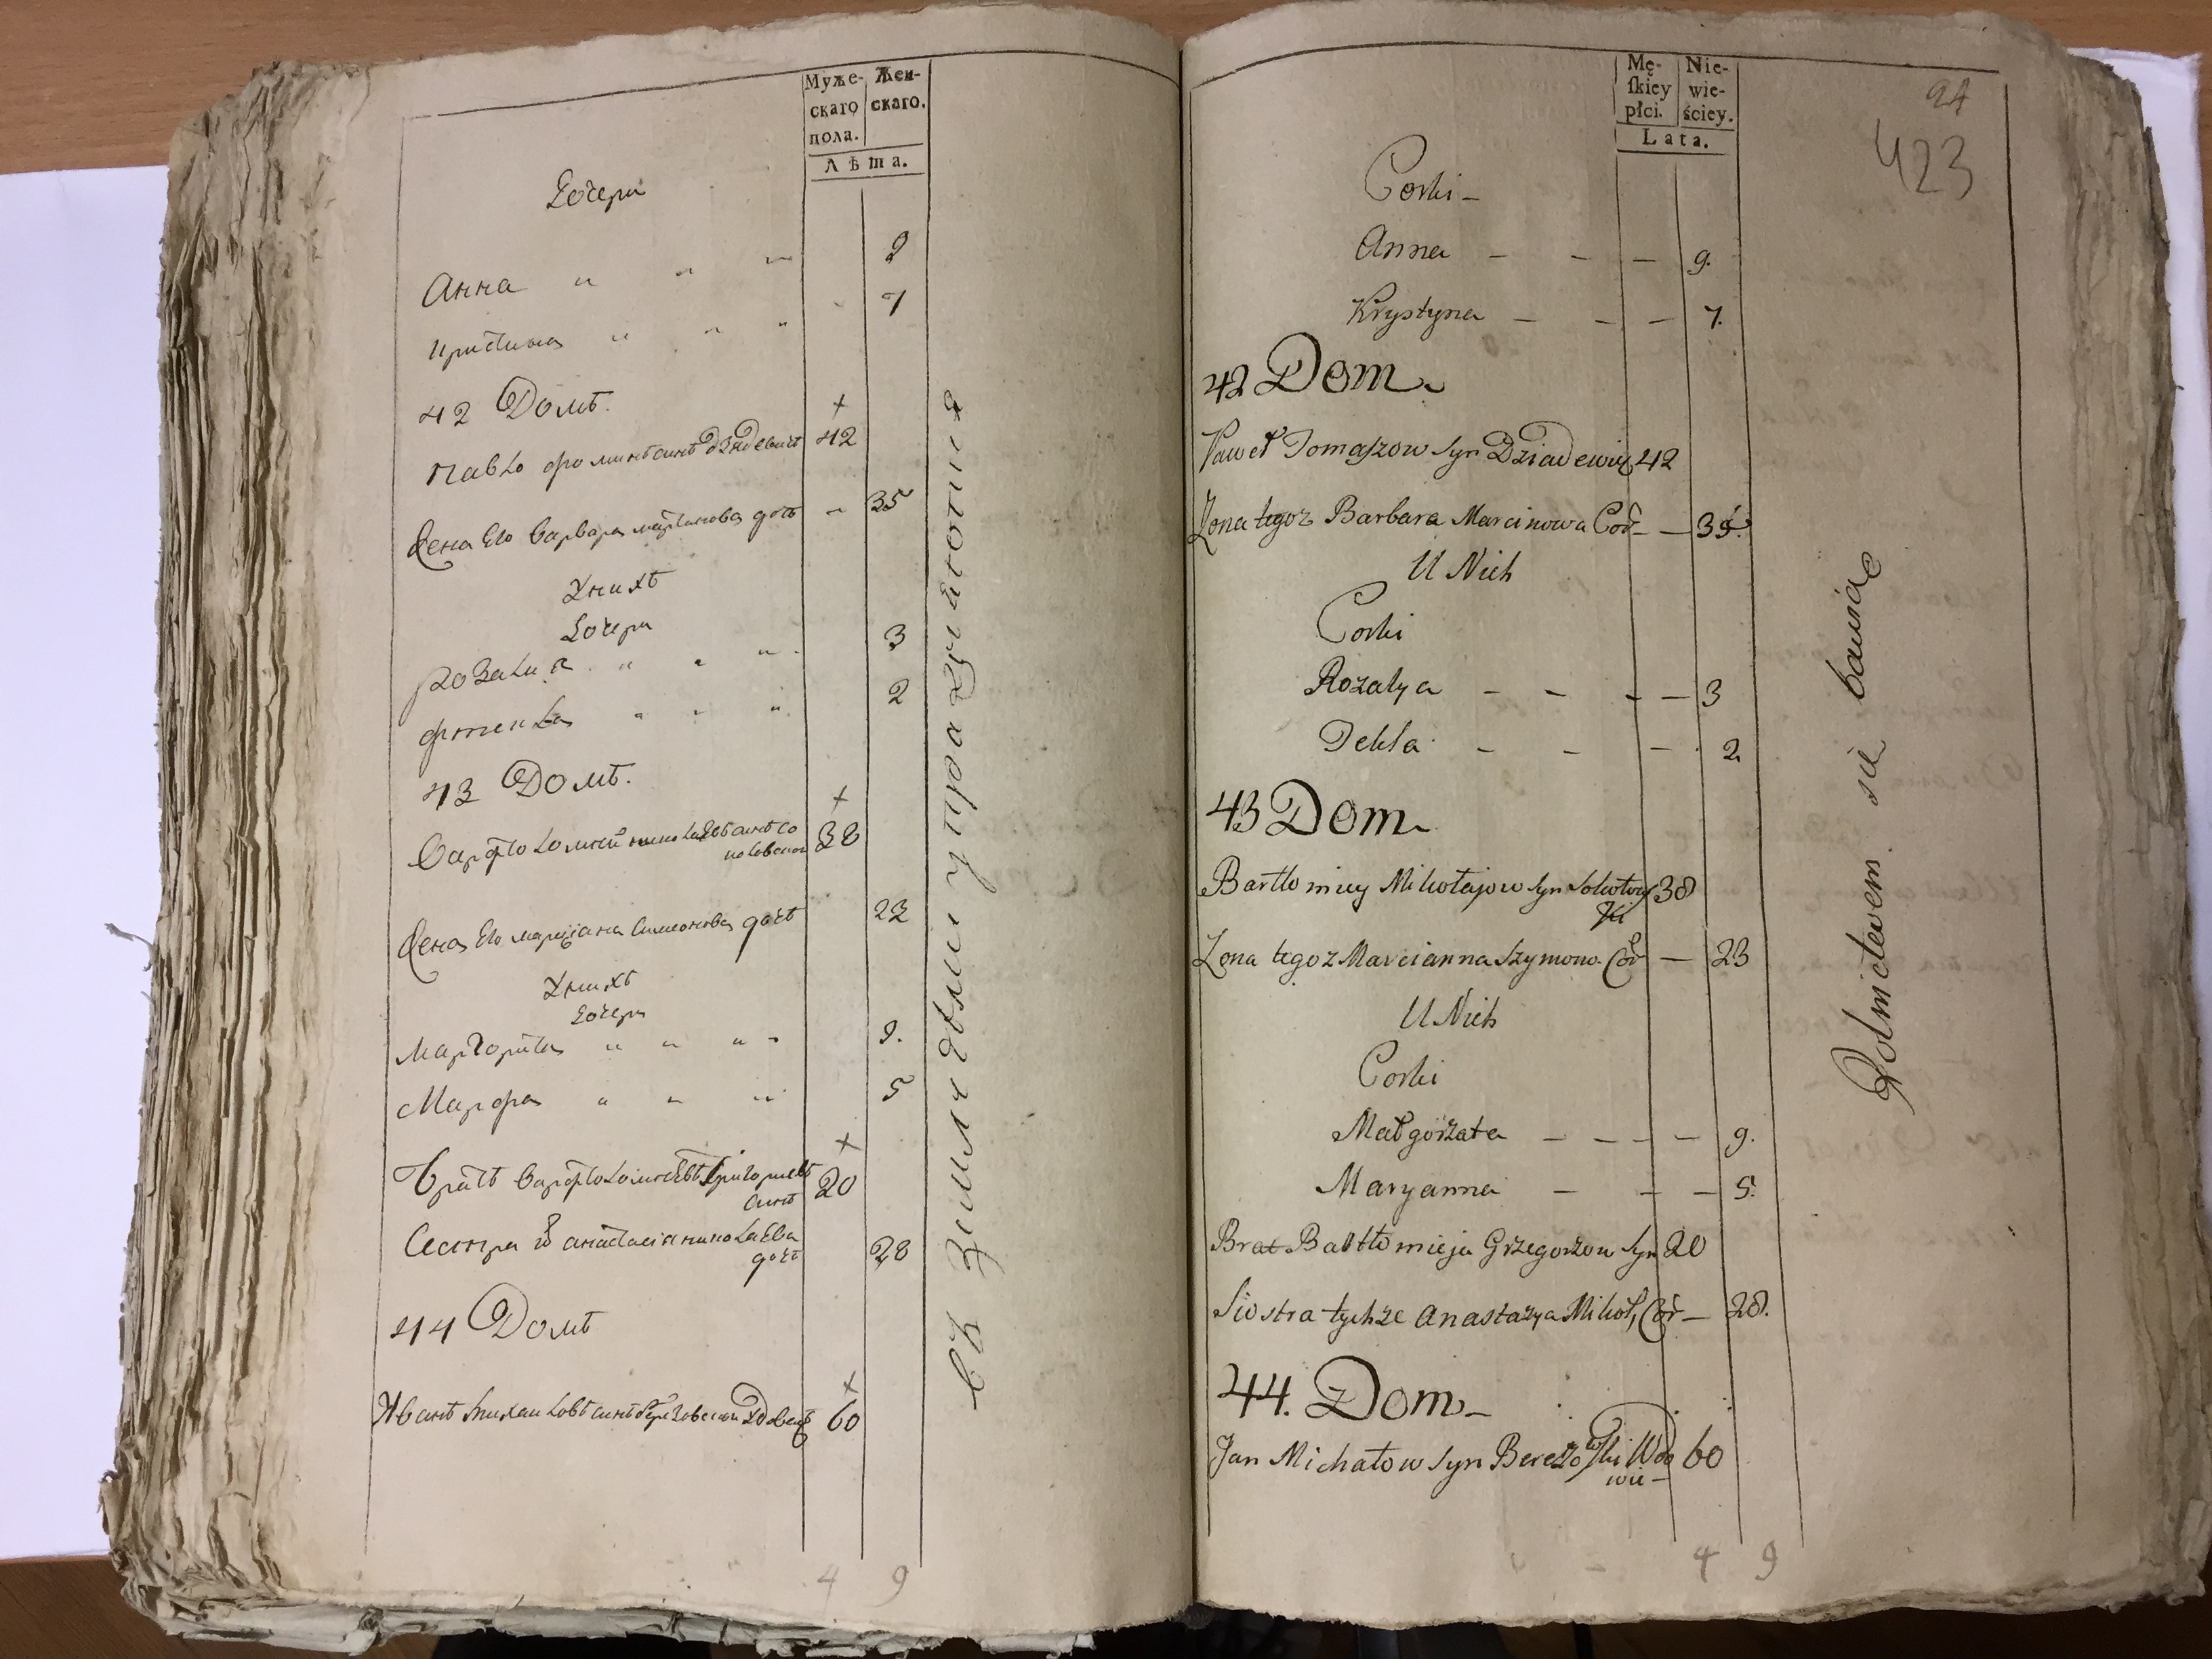 Муже- Жен-
скаго скаго.
пола.
Лѣта.
Дочери
Анна 9
Кристина 7
42 Домъ.
Павло Фоминъ синъ Дзядевичъ 42
Жена Его Варвара мартинова дочь 35
У нихъ
Дочери
Розалия 3
Фтекла 2
43 Домъ.
Варфоломей николаевъ синъ со
коловский 38
Жена Его марциана Симеонова дочь 23
У нихъ
Дочери
Маргорита 9.
Марфа 5
Братъ Варфоломеевъ Григориевъ
синъ 20
Сестра анастасия николаева
дочь 28
44 Домъ
Иванъ михаиловъ синъ Березовский Вдовецъ 60
4 9
Mę- Nie-
ſkiey wie-
płci. ściey.
Lata.
94
423
Corki -
Anna — — — 9.
Krystyna — — — 7.
42 Dom.
Paweł Tomaszow Syn Dziadewicz 42
Zona tegoz Barbara Marcinowa Cor — 35.
U Nich
Corki
Rozalya — — — — 3
Tekla — — — 2
43 Dom
Bartłomiey Mikołajow Syn Sokołow
ski 38
Zona tegoz Marcianna Szymono. Cor — 23
U Nich
Corki
Małgorzata — — — — 9.
Maryanna — — — 5.
Brat Bartłomieja Grzegorzow Syn 20
Siostra tychze Anastazya Mikoł, Cor — 28.
44. Dom
Jan Michałow Syn Berezowski Wdo
wie — 60
4 9
Rolnictwem się bawiąc